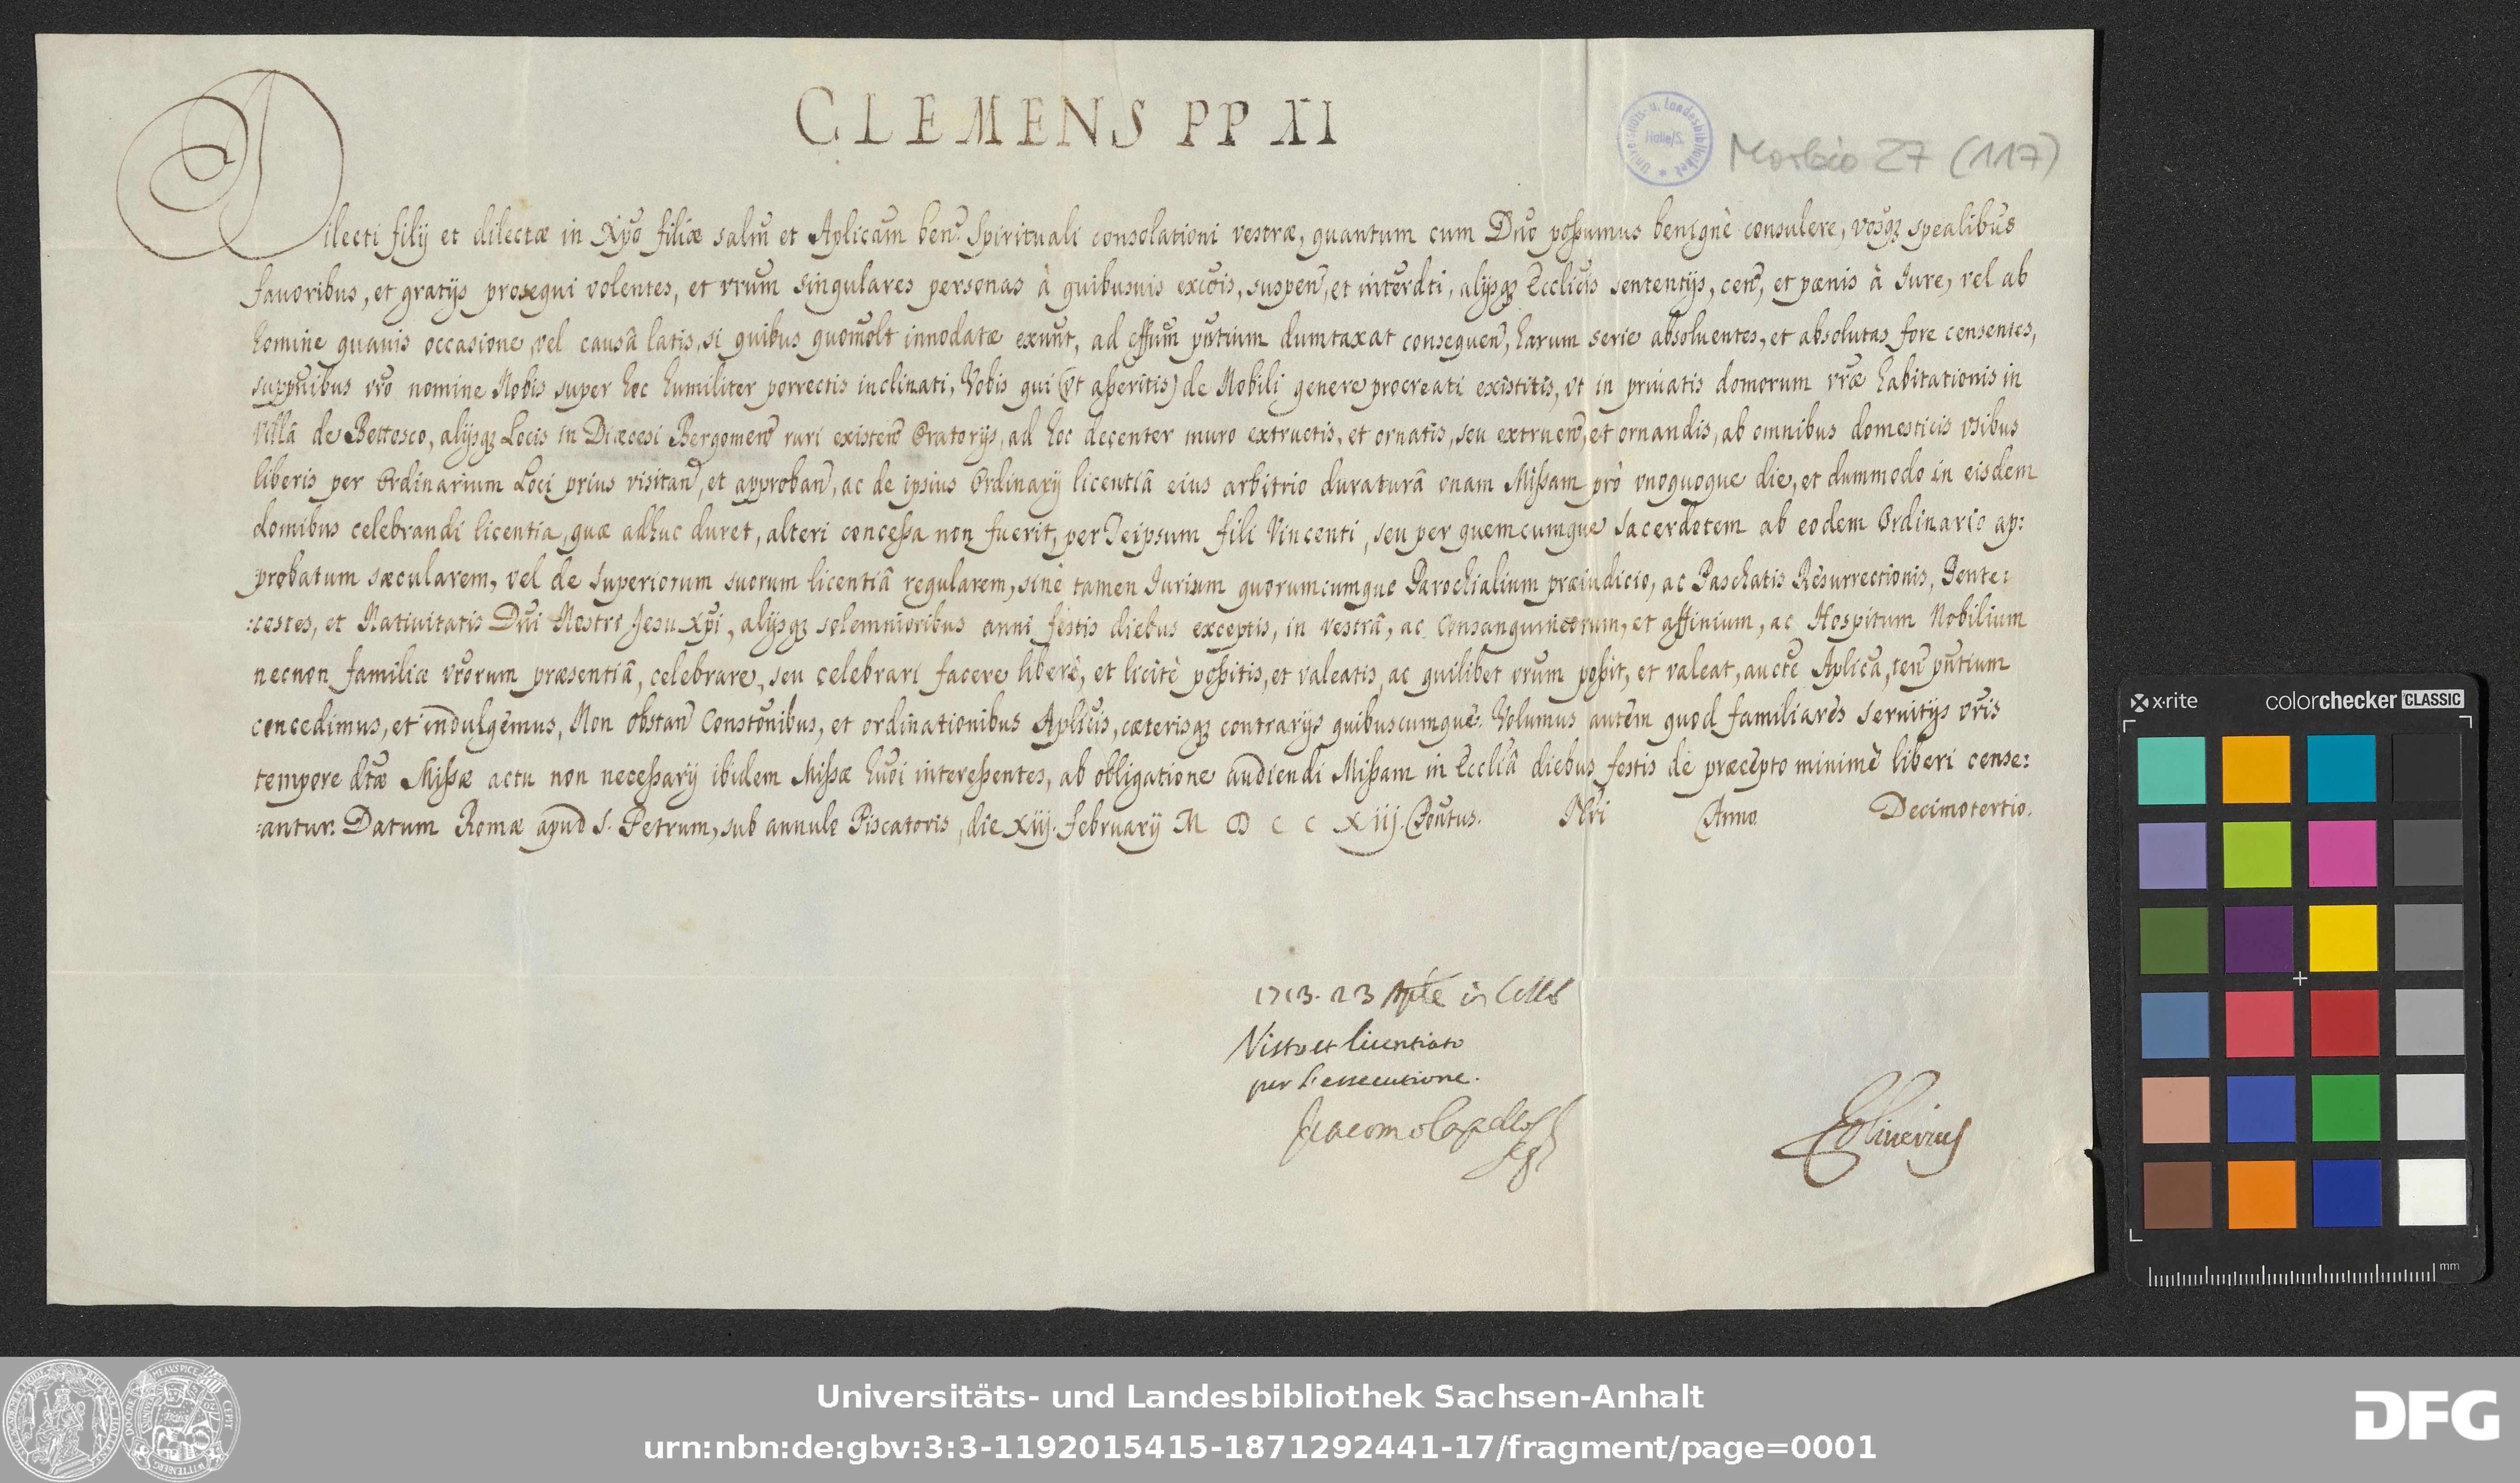 CLEMENS PP XI
Universitäts- u. Landesbibliothek Halle/S.
Morbio 27 (117)
Dilecti filij et dilectæ in Xp̃o filiæ salm̃ et Ap̃licam̃ ben̄. Spirituali consolationi vestræ, quantum cum Dño possumus benignè consulere, vosq3 sp̃ealibus
favoribus, et gratijs prosequi volentes, et vr̃um singulares personas à quibusuis excõis, suspen̄, et interd̃ti, alijsq3 Eccl̃icis sententijs, cen̄, et pœnis à Iure, vel ab
homine quauis occasione, vel causâ latis, si quibus quomolt̃ innodatæ exuñt, ad effũm pñtium dumtaxat consequen̄, harum serie absoluentes, et absolutas fore censentes,
supp̃nibus vr̃o nomine Nobis super hoc humiliter porrectis inclinati, Vobis qui (vt asseritis) de Nobili genere procreati existitis, vt in priuatis domorum vr̃æ habitationis in
Villâ de Bottosco, alijsq3 Locis in Diœcesi Bergomen̄ ruri existen̄ Oratorijs, ad hoc decenter muro extructis, et ornatis, seu extruen̄, et ornandis, ab omnibus domesticis vsibus
liberis per Ordinarium Loci prius visitan̄, et approban̄, ac de ipsius Ordinarij licentiâ eius arbitrio duraturâ unam Missam prò vnoquoque die, et dummodo in eisdem
domibus celebrandi licentia, quæ adhuc duret, alteri concessa non fuerit, per Teipsum fili Vincenti, seu per quemcumque Sacerdotem ab eodem Ordinario ap:
probatum sæcularem, vel de Superiorum suorum licentiâ regularem, sinè tamen Iurium quorumcumque Parochialium præiudicio, ac Paschatis Resurrectionis, Pente:
:costes, et Natiuitatis Dñi Nostri Jesu Xp̃i, alijsq3 solemnioribus anni festis diebus exceptis, in vestrâ, ac Consanguineorum, et affinium, ac Hospitum Nobilium
necnon familiæ vr̃orum præsentiâ, celebrare, seu celebrari facere liberè, et licitè possitis, et valeatis, ac quilibet vr̃um possit, et valeat, aucte Ap̃lica, ten̄ pñtium
concedimus, et indulgemus, Non obstan̄ Constõnibus, et ordinationibus Ap̃licis, cæterisq3 contrarijs quibuscumque. Volumus autem quod familiares seruitijs vr̃is
tempore d̃tæ Missæ actu non necessarij ibidem Missæ hũoi interessentes, ab obligatione audiendi Missam in Eccl̃iâ diebus festis de præcepto minimè liberi cense:
:antur. Datum Romæ apud S. Petrum, sub annulo Piscatoris, die xiij. februarij M D C C Xiij. Pont̃us. Nr̃i Anno Decimotertio.
1713. 23 in
Visto et licentiato
per l'essecutione.
Giacomo Capello
Seg.
Oliuerius
x·rite
colorchecker CLASSIC
mm
Universitäts- und Landesbibliothek Sachsen-Anhalt
urn:nbn:de:gbv:3:3-1192015415-1871292441-17/fragment/page=0001
DFG